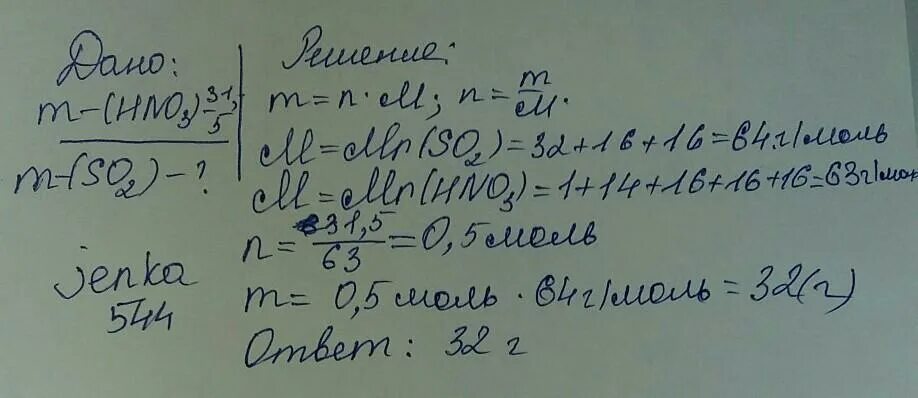 Дано:
m-(HNO₃) 31,5
m-(SO₂)-?
jenka
544
Решение:
m=n·M; n=m/M.
M=Mn(SO₂)=32+16+16=64г/моль
M=Mn(HNO₃)=1+14+16+16+16=63г/мол
n=31,5/63=0,5моль
m= 0,5моль·64г/моль=32(г)
Ответ: 32 г